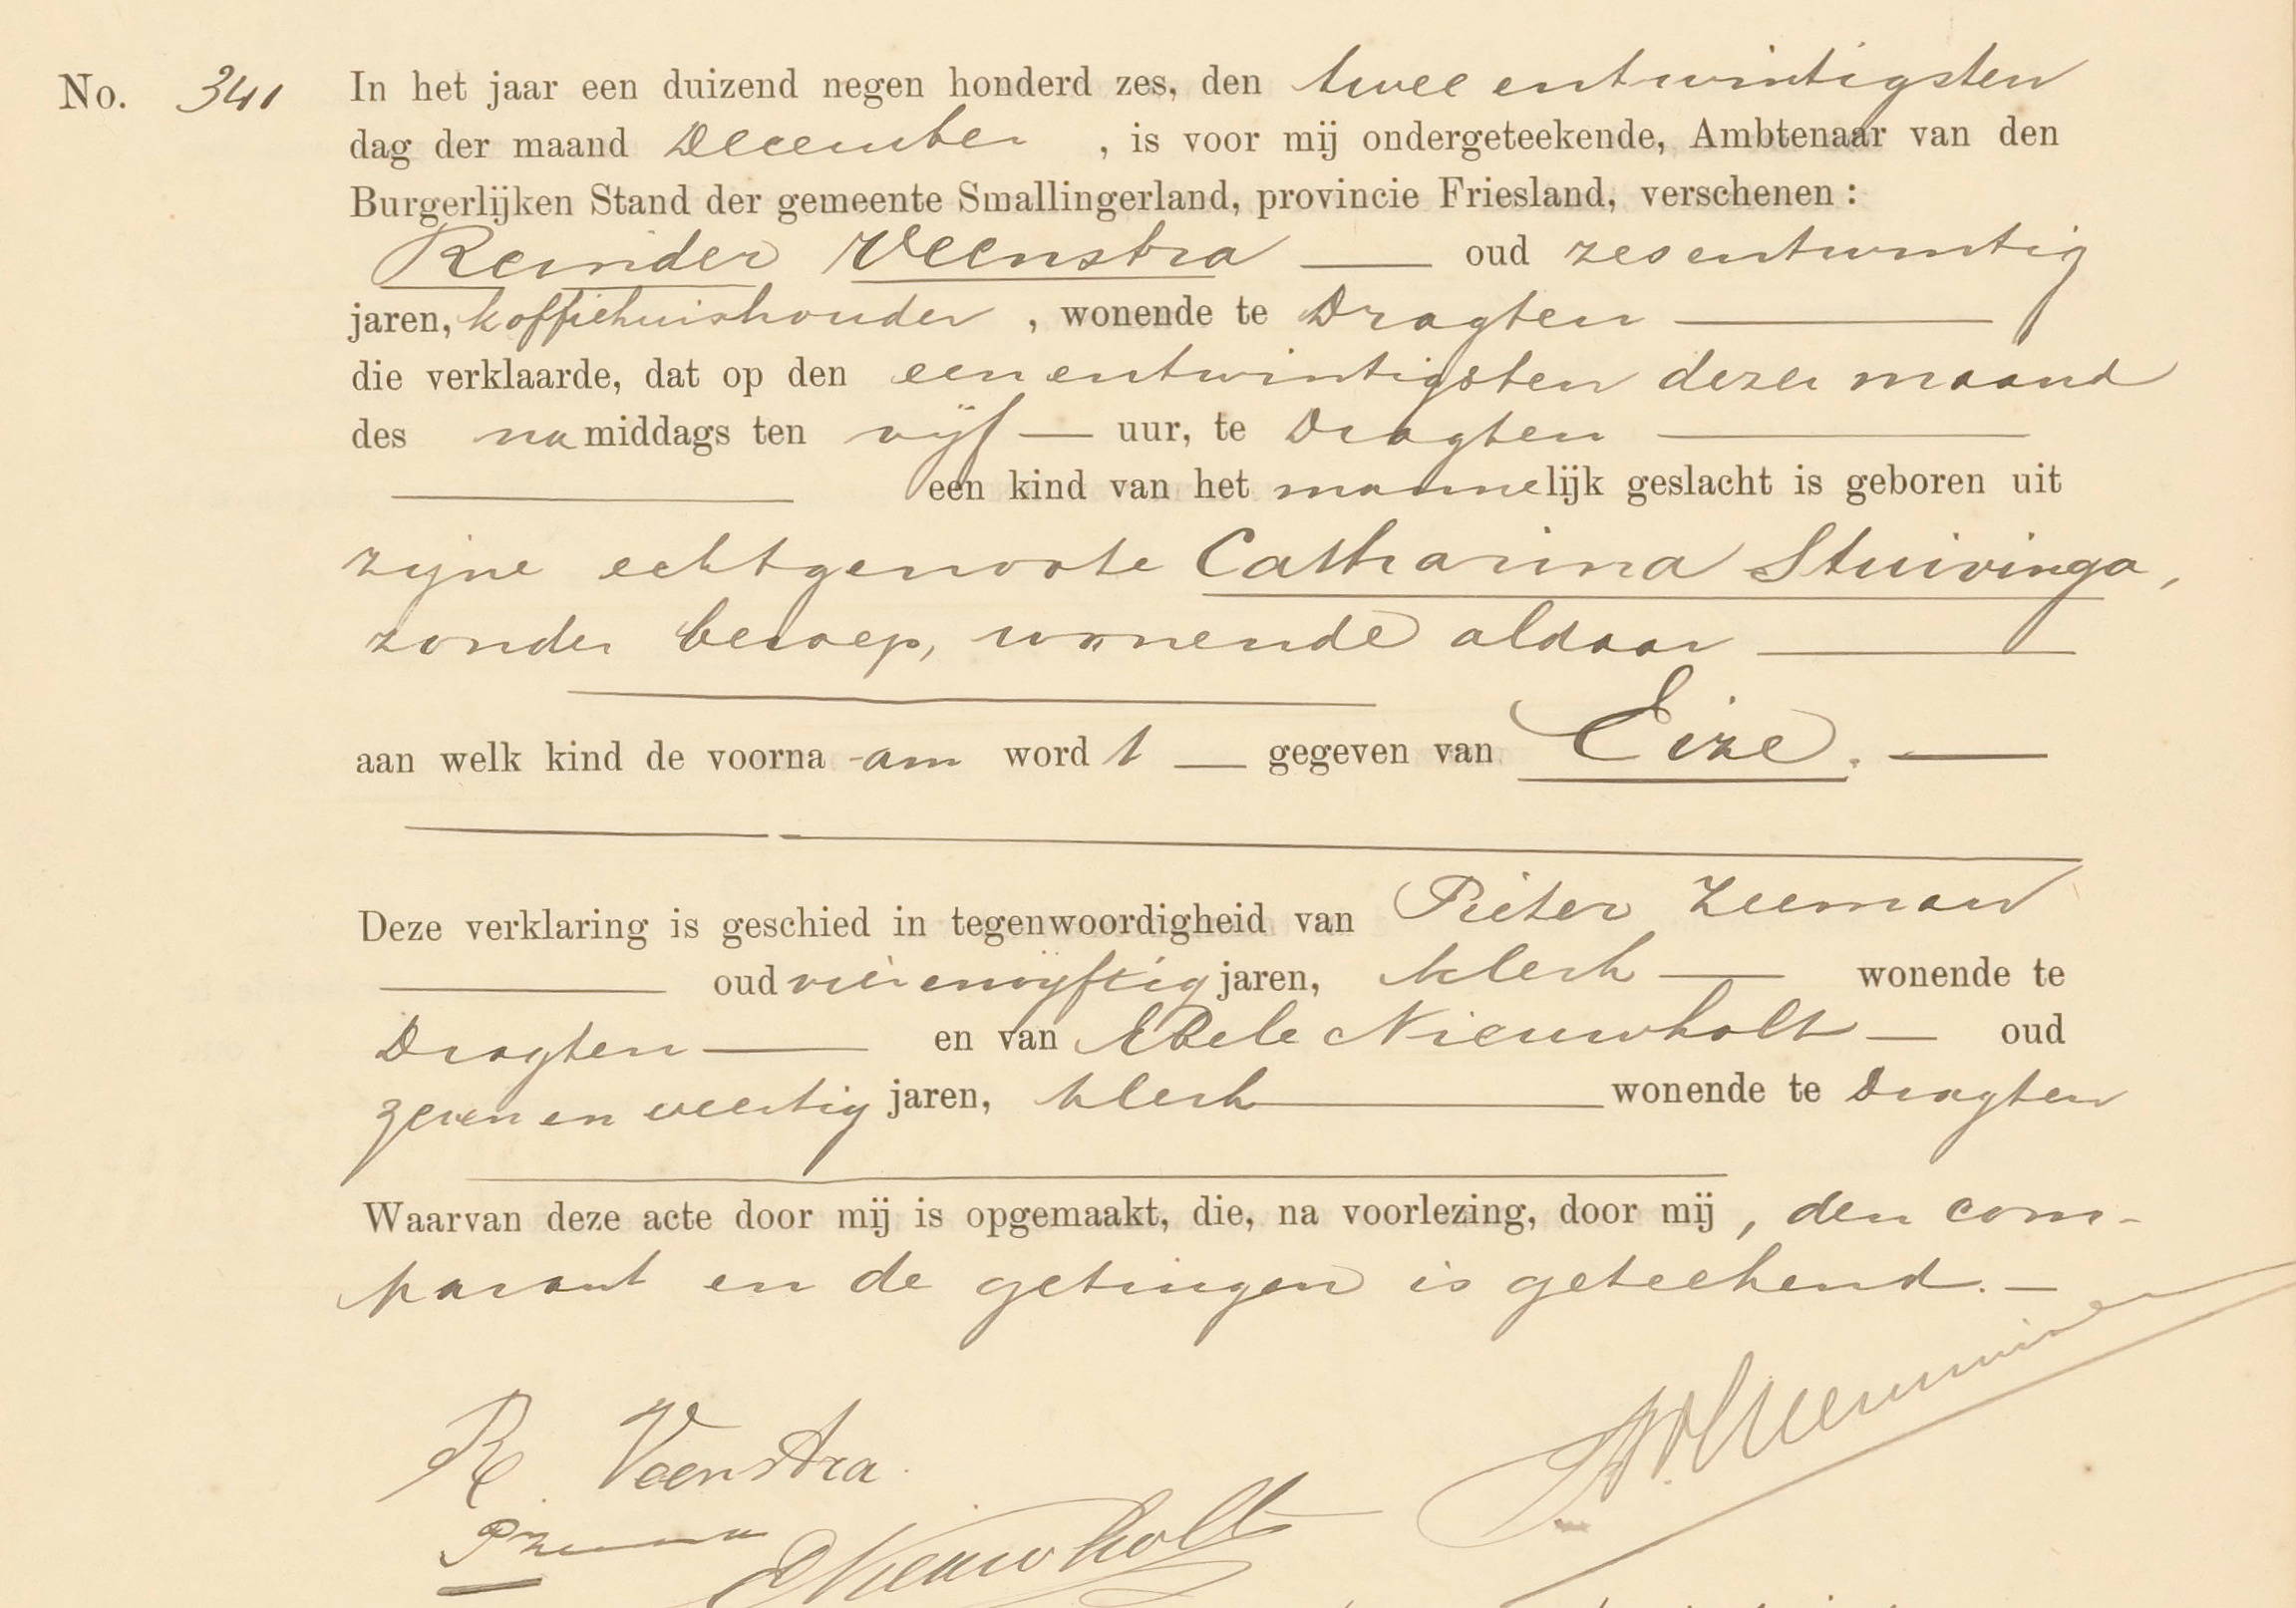 No. 341 In het jaar een duizend negen honderd zes, den twee entwintigsten
dag der maand December , is voor mij ondergeteekende, Ambtenaar van den
Burgerlijken Stand der gemeente Smallingerland, provincie Friesland, verschenen :
Reinder Veenstra — oud zesentwintig
jaren, koffiehuishouder , wonende te Dragten —
die verklaarde, dat op den een entwintigsten dezer maand
des namiddags ten vijf — uur, te Dragten —
— een kind van het mannelijk geslacht is geboren uit
zijne echtgenoote Catharina Stuivinga,
zonder beroep, wonende aldaar —
aan welk kind de voorna-am wordt — gegeven van Eize. —
Deze verklaring is geschied in tegenwoordigheid van Pieter Zeeman
— oud vierenvijftig jaren, klerk — wonende te
Dragten — en van Ebele Nieuwholt — oud
zeven en veertig jaren, klerk — wonende te Dragten
Waarvan deze acte door mij is opgemaakt, die, na voorlezing, door mij , den com-
parant en de getuigen is geteekend. —
R Veenstra
PZeeman
ENieuwholt